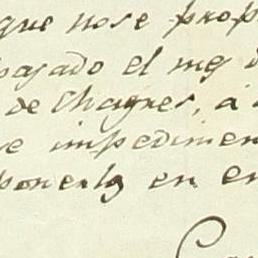 que nose prop
pasado el mes d
de Chagres, á
e impedimen
ponerlo en en